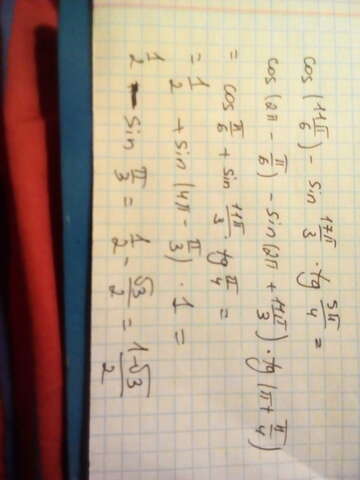 cos(11π/6) - sin 17π/3 · tg 5π/4 =
cos(2π - π/6) - sin(2π + 11π/3) · tg(π + π/4)
= cos π/6 + sin 11π/3 · tg π/4 =
= 1/2 + sin(4π - π/3) · 1 =
1/2 - sin π/3 = 1/2 - √3/2 = 1-√3/2